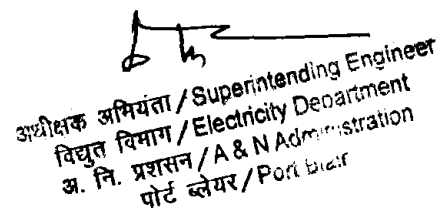 अधीक्षक अभियंता / Superintending Engineer
विद्युत विभाग / Electricity Department
अ. नि. प्रशासन / A & N Administration
पोर्ट ब्लेयर / Port Blair